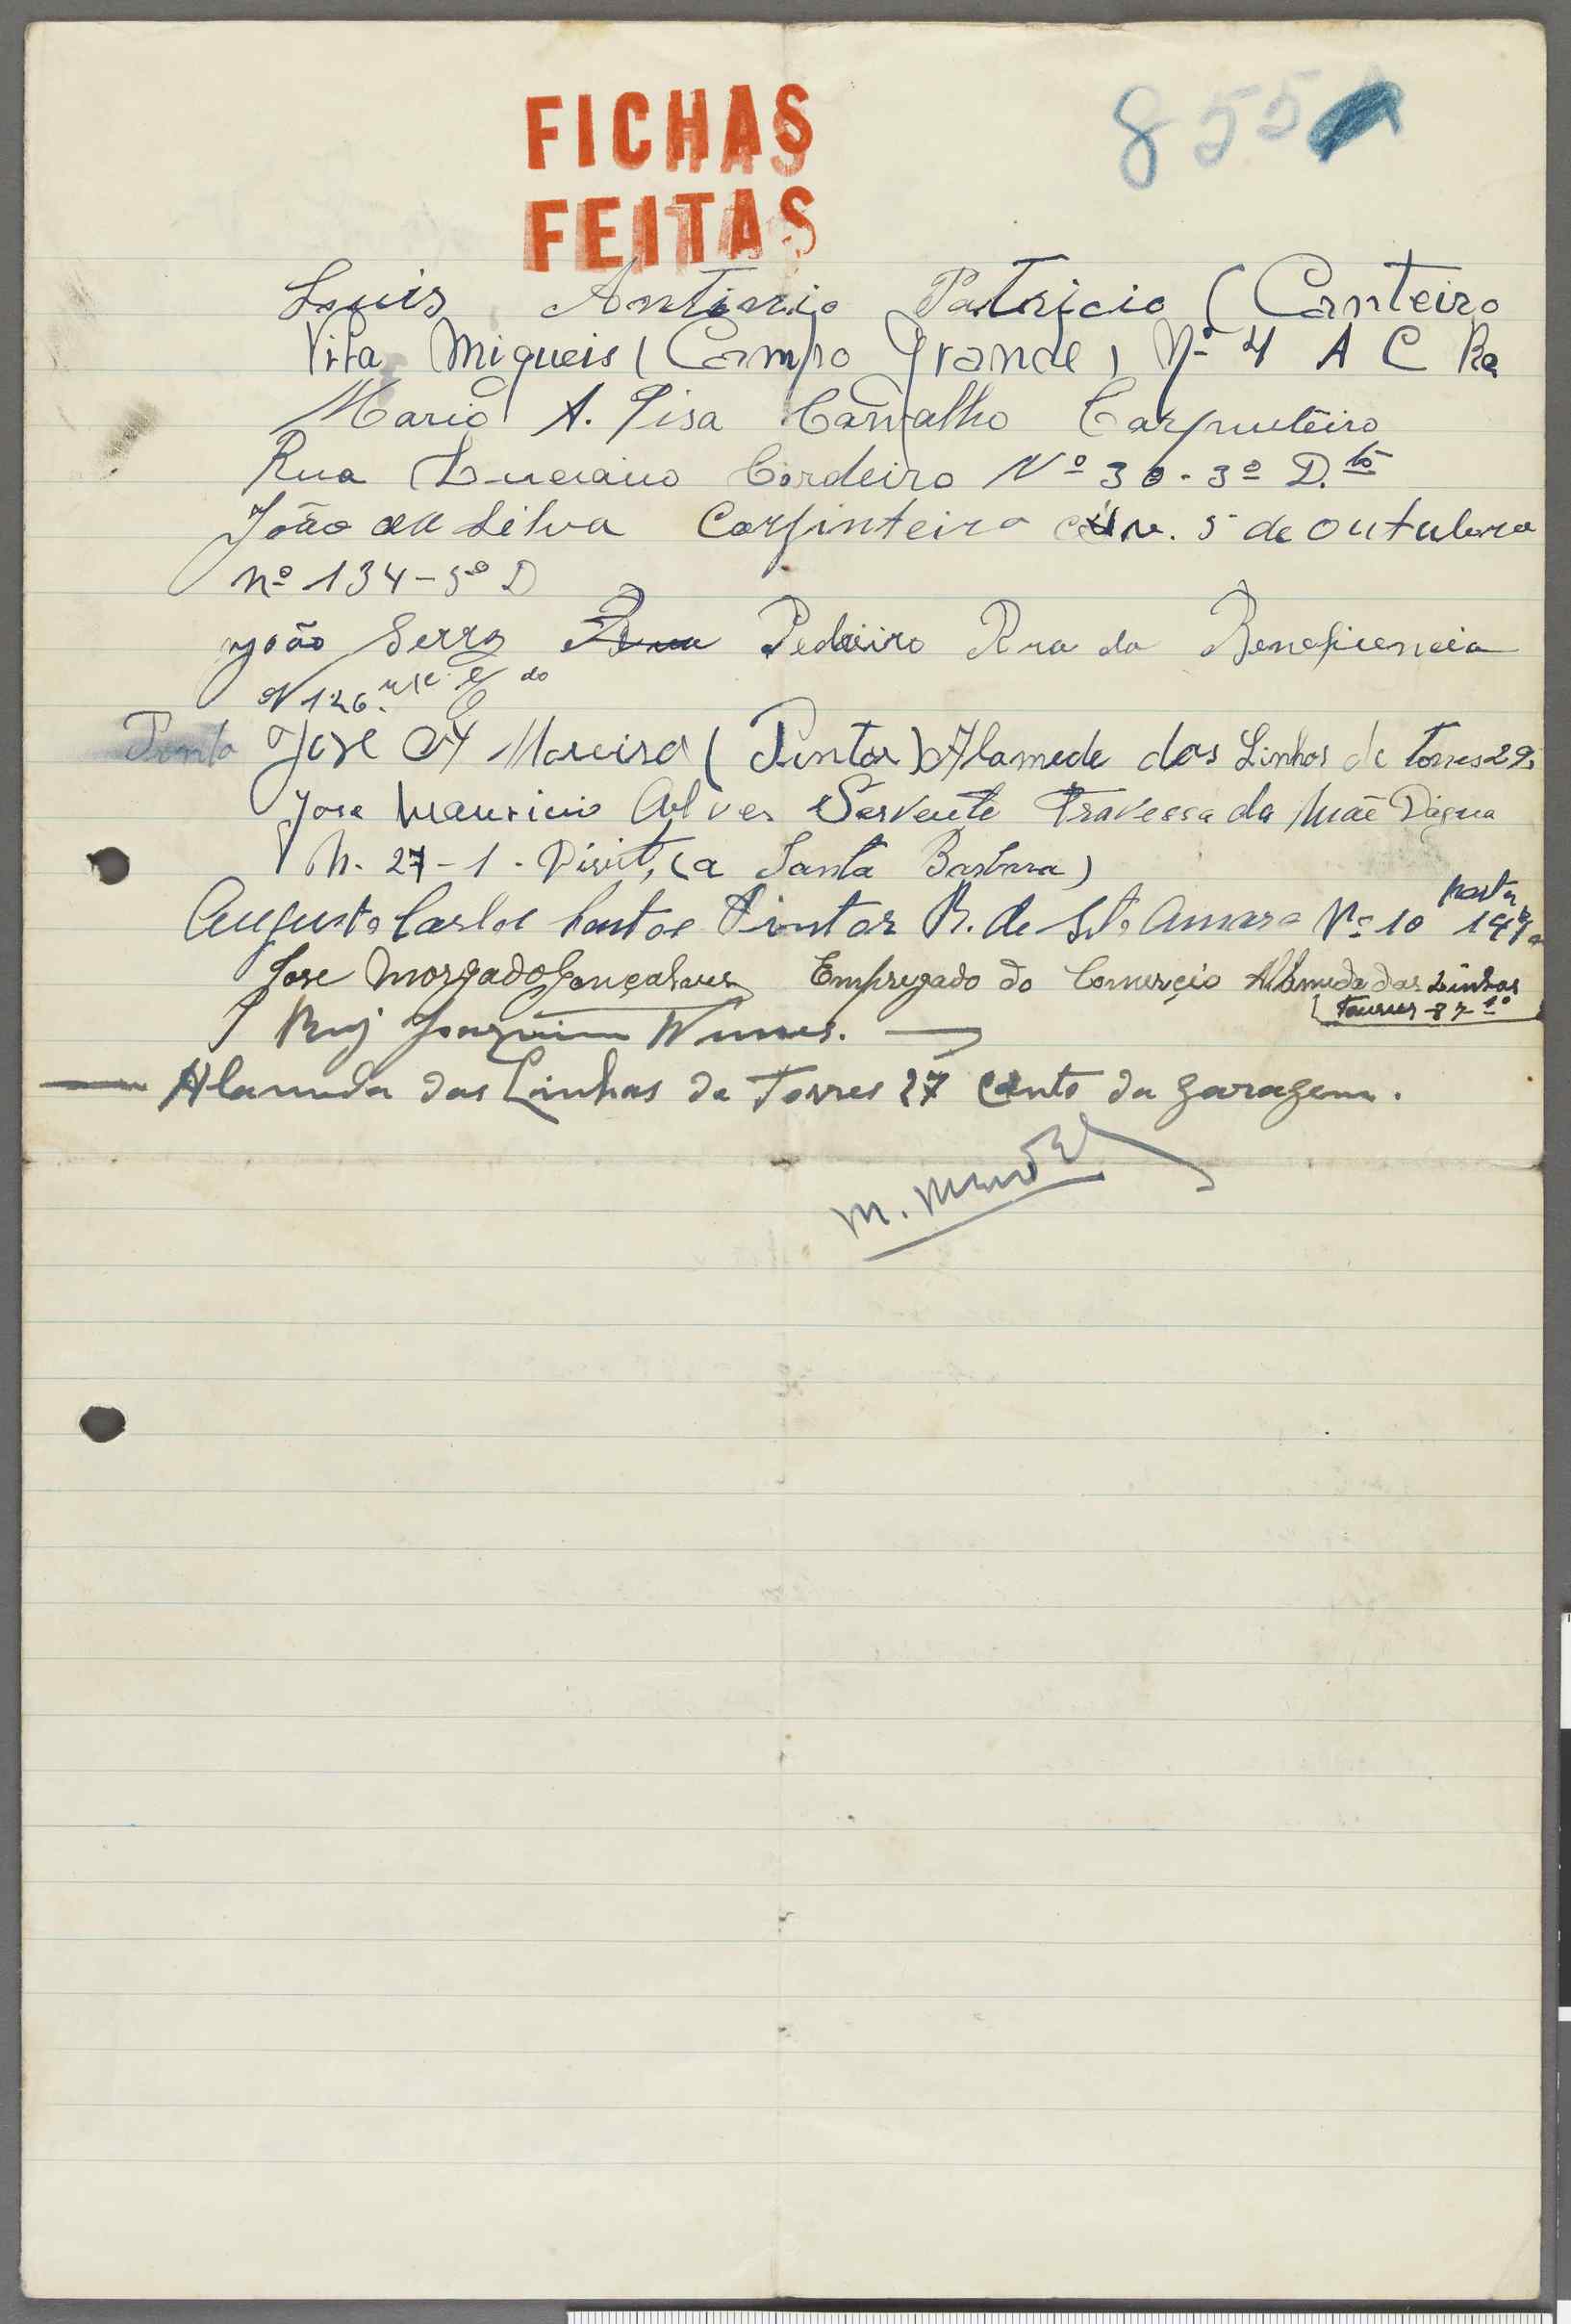 FICHAS
FEITAS
855
Luis Antonio Patricio (Canteiro
Vila Migueis (Campo Grande) Nº 4 A C Ra
Mario A. Pisa Carvalho Carpinteiro
Rua Luciano Cordeiro Nº 30-3º D.to
João da Silva Carpinteiro Av. 5 de Outubro
nº 134-5º D
João Serra Pedreiro Rua da Beneficencia
Nº 126
José M Moreira (Pintor) Alameda das Linhas de Torres 29
Jose Mauricio Alves Servente Travessa da Mãe Dágua
N. 27-1-Direit, (a Santa Barbara)
Augusto Carlos Santos Pintor R. de Sto Amaro Nº 10 porta 147
Jose Morgado Gonçalves Empregado do Comercio Alameda das Linhas
Torres-87-1º
Ruj Joaquim Nunes.
Alameda das Linhas de Torres 27 Canto da garagem.
M. Mendes